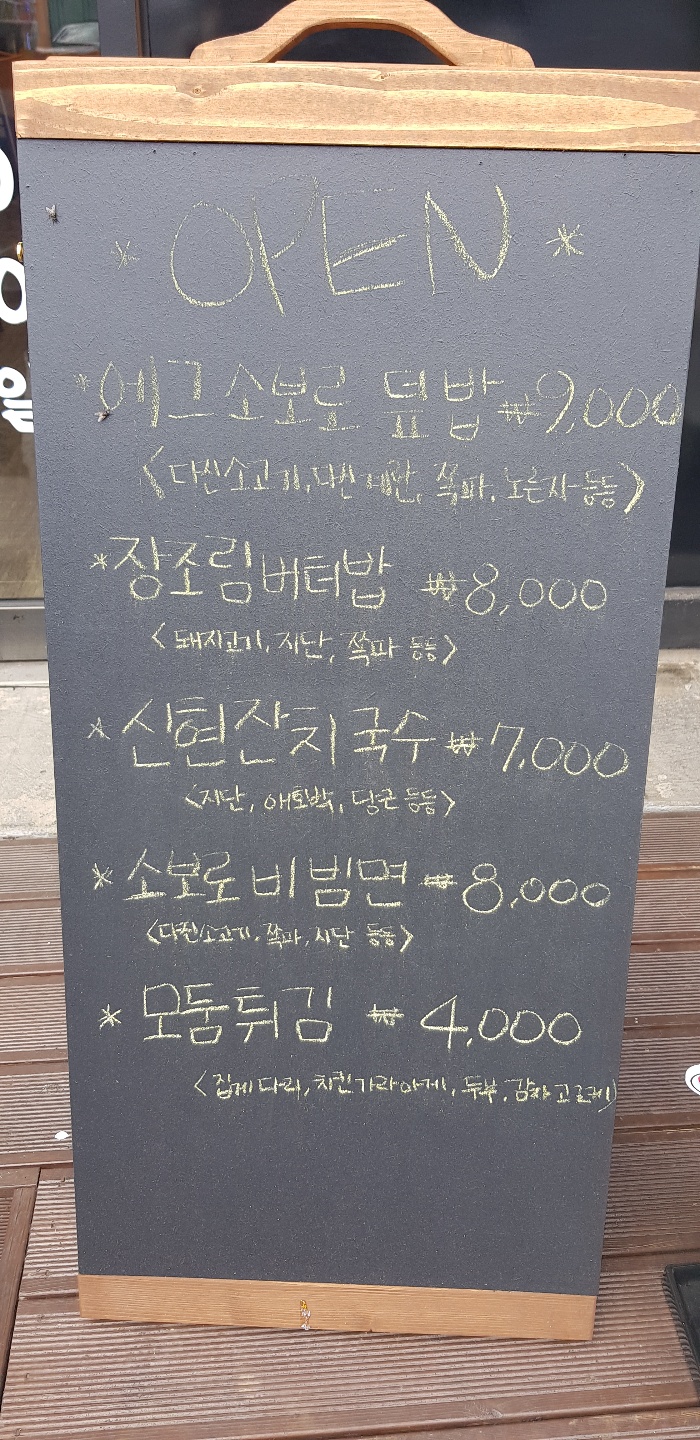 * OPEN *
* 에그소보로 덮밥 ₩9,000
<다진소고기, 다진계란, 쪽파, 노른자 등등>
* 장조림버터밥 ₩8,000
<돼지고기, 지단, 쪽파 등등>
* 신현잔치국수 ₩7,000
<지단, 애호박, 당근 등등>
* 소보로비빔면 ₩8,000
<다진소고기, 쪽파, 지단 등등>
* 모둠튀김 ₩4,000
<집게다리, 치킨가라아게, 두부, 감자고로케>